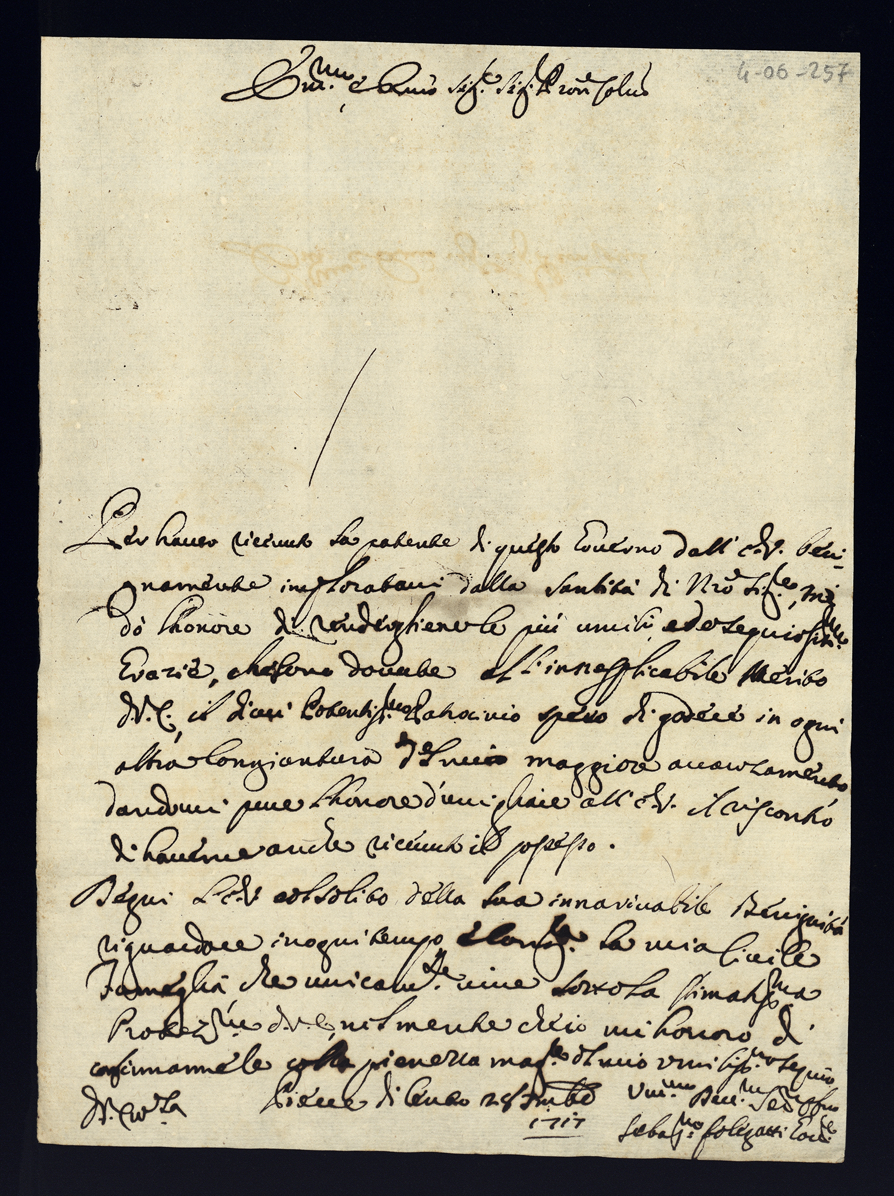 4-06-257
Em.mo e Rmo Sig.r Sig.r Pron Colmo
Per hauer riceuuto la patente di questo Gouerno dall' E.V. beni-
gnamente imploratami dalla Santità di Nro Sig.re, mi
dò l'honore di rendergliene le più umili, ed ossequiosiss.me
Grazie, che sono douute all' innesplicabile Merito
d.V.E., il di cui Potentiss.mo Patrocinio spero di godere in ogni
altra Congiuntura del mio maggiore auanzamento
dandomi pure l'honore d'umigliare all' E.V. il riscontro
di hauerne anche riceuuto il possesso.
Degni l'E.V. col solito della sua innariuabile Benignità
riguardare in ogni tempo, e la mia Ciuile
Famiglia che unicam.te uiue sotto la stimatiss.ma
Protez.ne d.V.E., nel mentre ch'io mi honoro di
confirmarmele colla pienezza mag.re del mio umiliss.mo ossequio
Di V. Em.za
Pieue di Cento 28 Smbre
1717
Um.mo Deu.mo Ser.
Sebas.no Goue.re